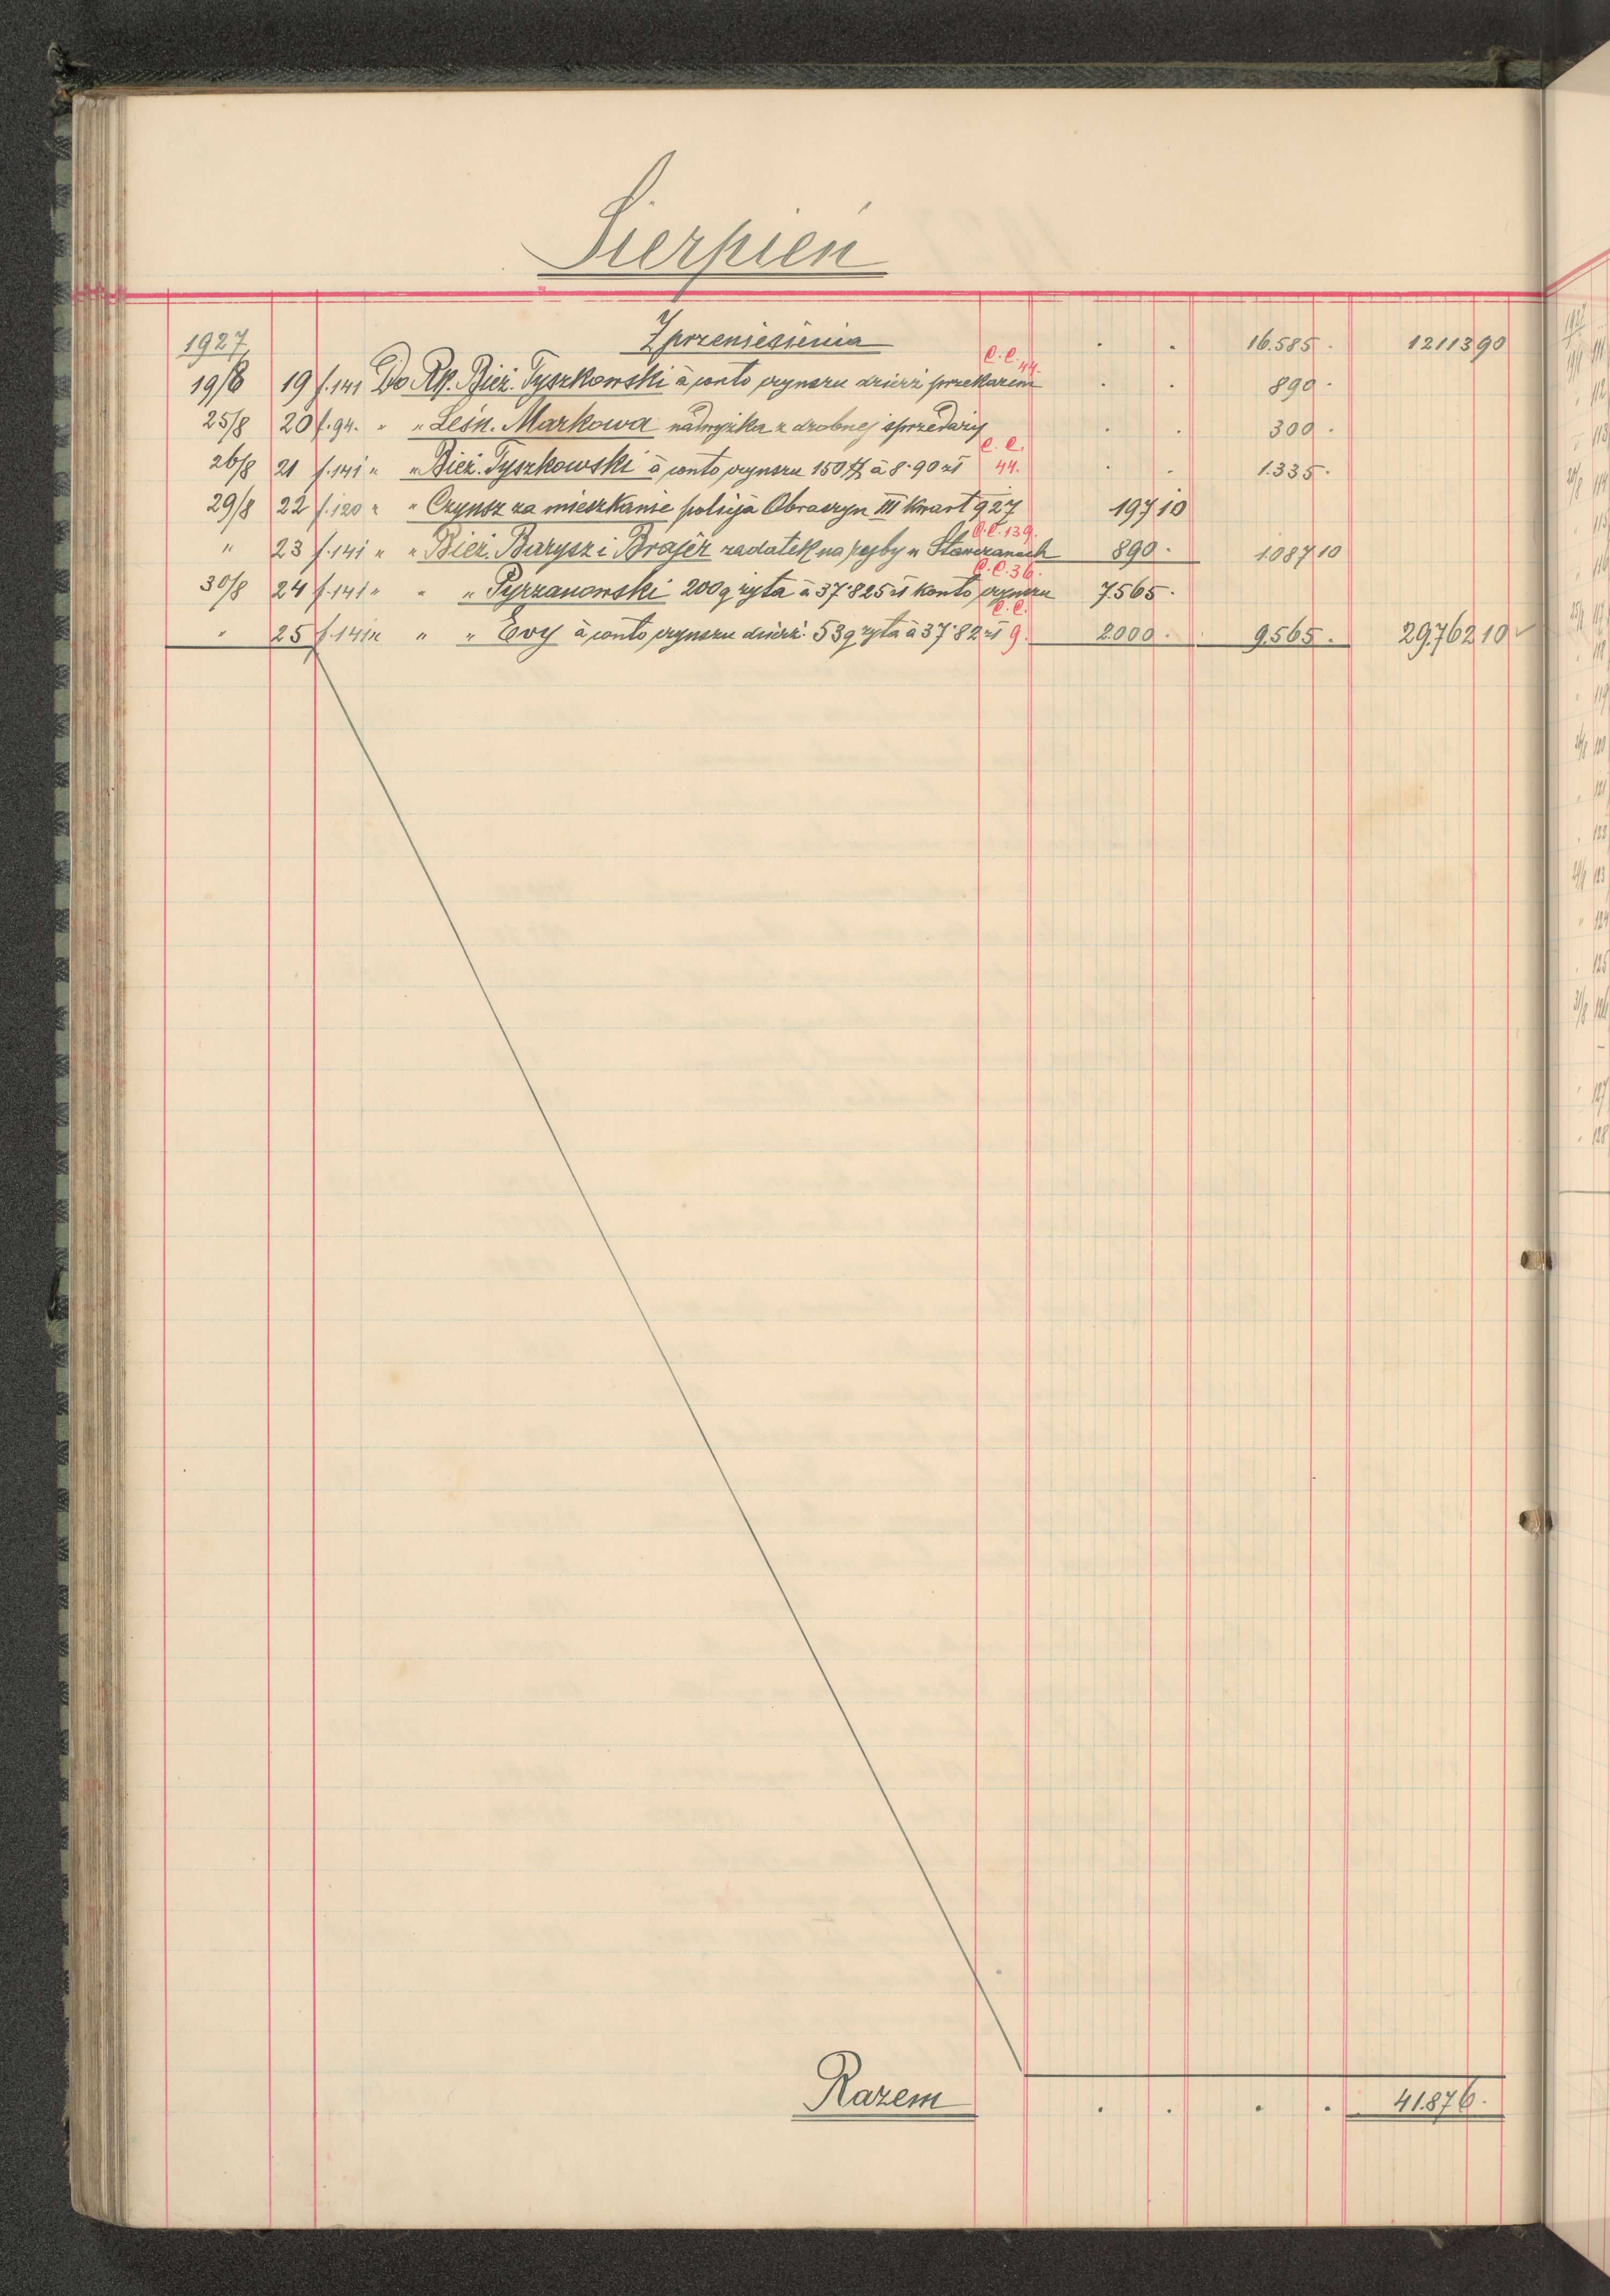 Sierpień
1927 Z przeniesienia . . 16.585 . 12113 90
C. C. 44.
19/8 19 f. 141 Do Rp. Bież. Tyszkowski à conto czynszu dzierż przekazem . . 890 .
25/8 20 f. 94. " " Leśn. Markowa nadwyżka z drobnej sprzedaży . . 300 .
C. C.
26/8 21 f. 141 " " Bież. Tyszkowski à conto czynszu 150 à 8·90 zł 44. . . 1.335 .
29/8 22 f. 120 " " Czynsz za mieszkanie policja Obraszyn III kwart 927 197 10
C. C. 139.
" 23 f. 141 " " Bież. Barysz i Brajer zadatek na ryby w Stawczanach 890 . 1.087 10
C. C. 36.
30/8 24 f. 141 " " " Pyrzanowski 200 q żyta à 37·825 zł konto czynszu 7.565 .
C. C.
" 25 f. 141 " " " Evy à conto czynszu dzierż. 53 q żyta à 37·82 zł 9. 2.000 . 9.565 . 29.762 10
Razem . . . . 41.876 .